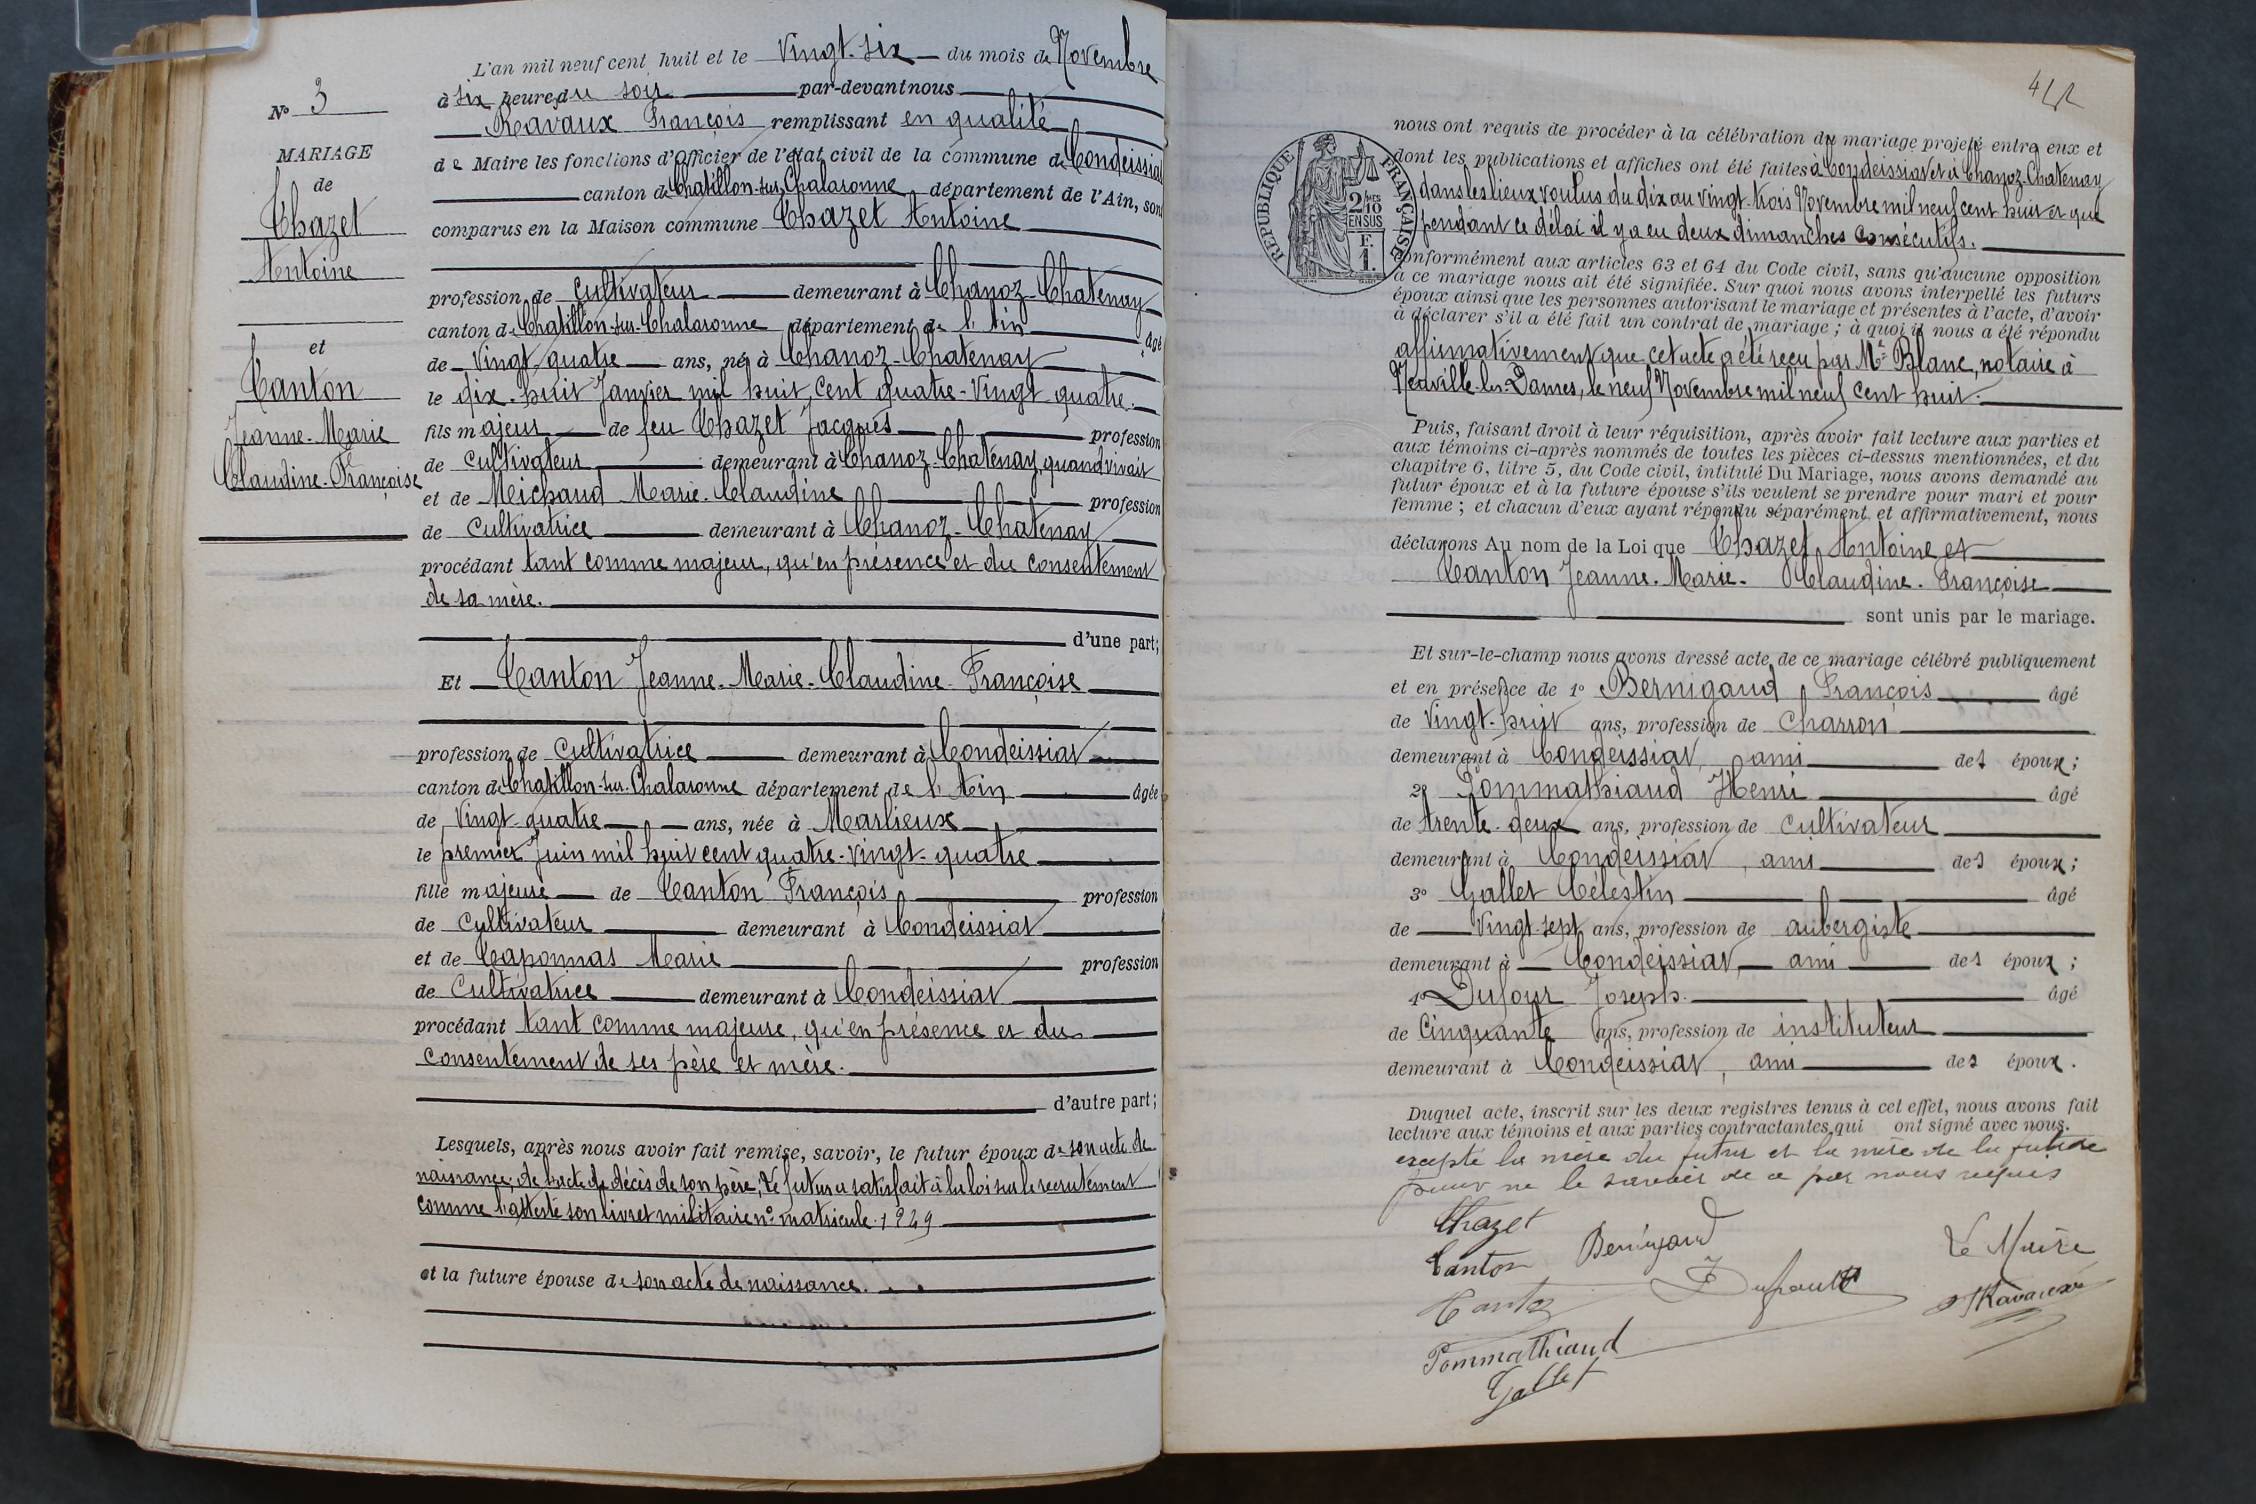 L'an mil neuf cent huit et le Vingt-six du mois de Novembre
N° 3
à six heures du soir par-devant nous
Ravaux François remplissant en qualité
MARIAGE
de Maire les fonctions d'officier de l'état civil de la commune de Condeissiat
de
canton de Chatillon-sur-Chalaronne département de l'Ain, sont
Chazet
comparus en la Maison commune Chazet Antoine
Antoine
profession de cultivateur demeurant à Chanoz-Chatenay
canton de Chatillon-sur-Chalaronne département de l'Ain âgé
et
de vingt quatre ans, né à Chanoz-Chatenay
Canton
le dix-huit Janvier mil huit cent quatre-vingt quatre.
Jeanne-Marie
fils majeur de feu Chazet Jacques profession
Claudine-Françoise
de cultivateur demeurant à Chanoz-Chatenay, quand vivait
et de Michaud Marie-Claudine profession
de cultivatrice demeurant à Chanoz-Chatenay
procédant tant comme majeur, qu'en présence et du consentement
de sa mère.
d'une part;
Et Canton Jeanne-Marie-Claudine-Françoise
profession de cultivatrice demeurant à Condeissiat
canton de Chatillon-sur-Chalaronne département de l'Ain âgée
de Vingt-quatre ans, née à Marlieux
le premier Juin mil huit cent quatre-vingt-quatre
fille majeure de Canton François profession
de cultivateur demeurant à Condeissiat
et de Caponnas Marie profession
de Cultivatrice demeurant à Condeissiat
procédant tant comme majeure, qu'en présence et du
consentement de ses père et mère.
d'autre part;
Lesquels, après nous avoir fait remise, savoir, le futur époux de son acte de
naissance; de l'acte de décès de son père; Le futur a satisfait à la loi sur le recrutement
comme l'atteste son livret militaire n° matricule 1249
et la future épouse de son acte de naissance.
nous ont requis de procéder à la célébration du mariage projeté entre eux et
dont les publications et affiches ont été faites à Condeissiat et à Chanoz-Chatenay
dans les lieux voulus du dix au vingt-trois Novembre mil neuf cent huit et que
pendant ce délai il y a eu deux dimanches consécutifs.
RÉPUBLIQUE FRANÇAISE
2/10
EN SUS
F.
1.
conformément aux articles 63 et 64 du Code civil, sans qu'aucune opposition
à ce mariage nous ait été signifiée. Sur quoi nous avons interpellé les futurs
époux ainsi que les personnes autorisant le mariage et présentes à l'acte, d'avoir
à déclarer s'il a été fait un contrat de mariage; à quoi il nous a été répondu
affirmativement que cet acte a été reçu par Me Blanc, notaire à
Neuville-les-Dames, le neuf Novembre mil neuf cent huit.
Puis, faisant droit à leur réquisition, après avoir fait lecture aux parties et
aux témoins ci-après nommés de toutes les pièces ci-dessus mentionnées, et du
chapitre 6, titre 5, du Code civil, intitulé Du Mariage, nous avons demandé au
futur époux et à la future épouse s'ils veulent se prendre pour mari et pour
femme; et chacun d'eux ayant répondu séparément et affirmativement, nous
déclarons Au nom de la Loi que Chazet Antoine et
Canton Jeanne-Marie-Claudine-Françoise
sont unis par le mariage.
Et sur-le-champ nous avons dressé acte de ce mariage célébré publiquement
et en présence de 1° Bernigaud François âgé
de Vingt-huit ans, profession de charron
demeurant à Condeissiat, ami des époux;
2° Pommathiaud Henri âgé
de trente-deux ans, profession de cultivateur
demeurant à Condeissiat, ami des époux;
3° Gallet Célestin âgé
de Vingt-sept ans, profession de aubergiste
demeurant à Condeissiat, ami des époux;
4° Dufour Joseph âgé
de Cinquante ans, profession de instituteur
demeurant à Condeissiat, ami des époux.
Duquel acte, inscrit sur les deux registres tenus à cet effet, nous avons fait
lecture aux témoins et aux parties contractantes, qui ont signé avec nous.
excepté la mère du futur et la mère de la future
pour ne le savoir de ce par nous requis
Chazet
Canton Bernigaud Le Maire
Canton Dufour Ravaux
Pommathiaud
Gallet